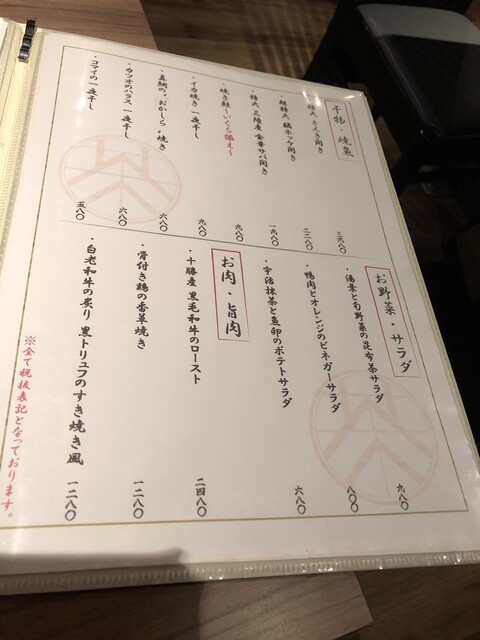 干物・焼魚
・特大 きんき開き 三九八〇
・超特大 縞ホッケ開き 二二八〇
・特大 三陸産 金華サバ開き 一九八〇
・焼き鮭～いくら添え～ 九八〇
・イカ焼き一夜干し 九八〇
・真鯛の“おかしら”焼き 六八〇
・カツオのハラス一夜干し 六八〇
・コマイの一夜干し 五八〇
お野菜・サラダ
・湯葉と旬野菜の昆布茶サラダ 九八〇
・鴨肉とオレンジのビネガーサラダ 八〇〇
・宇治抹茶と魚卵のポテトサラダ 六八〇
お肉・旨肉
・十勝産 黒毛和牛のロースト 二四八〇
・骨付き鶏の香草焼き 一二八〇
・白老和牛の炙り 黒トリュフのすき焼き風 一二八〇
※全て税抜表記となっております。